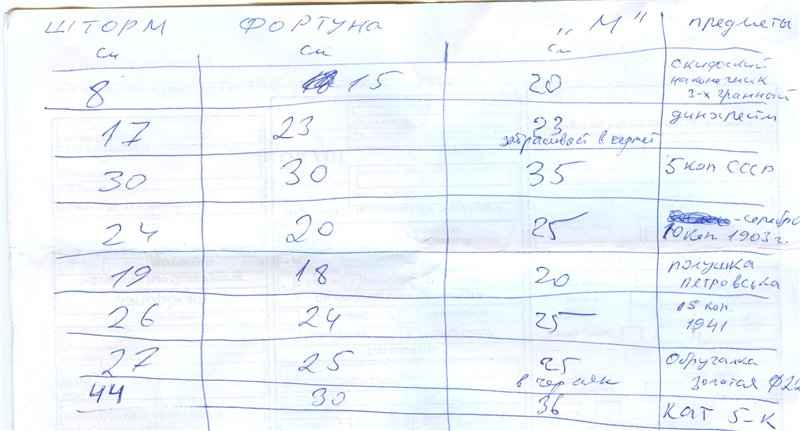 ШТОРМ ФОРТУНА „М" предметы
см см см
8 15 20 скифский
наконечник
3-х гранный
17 23 23 динхрейм
отбрасывает в чермет
30 30 35 5 коп СССР
24 20 25 -серебро
10 коп 1903 г.
19 18 20 полушка
петровська
26 24 25 15 коп.
1941
27 25 25 Обручалка
в чермяк золотая Ф22
44 30 36 КАТ 5-К